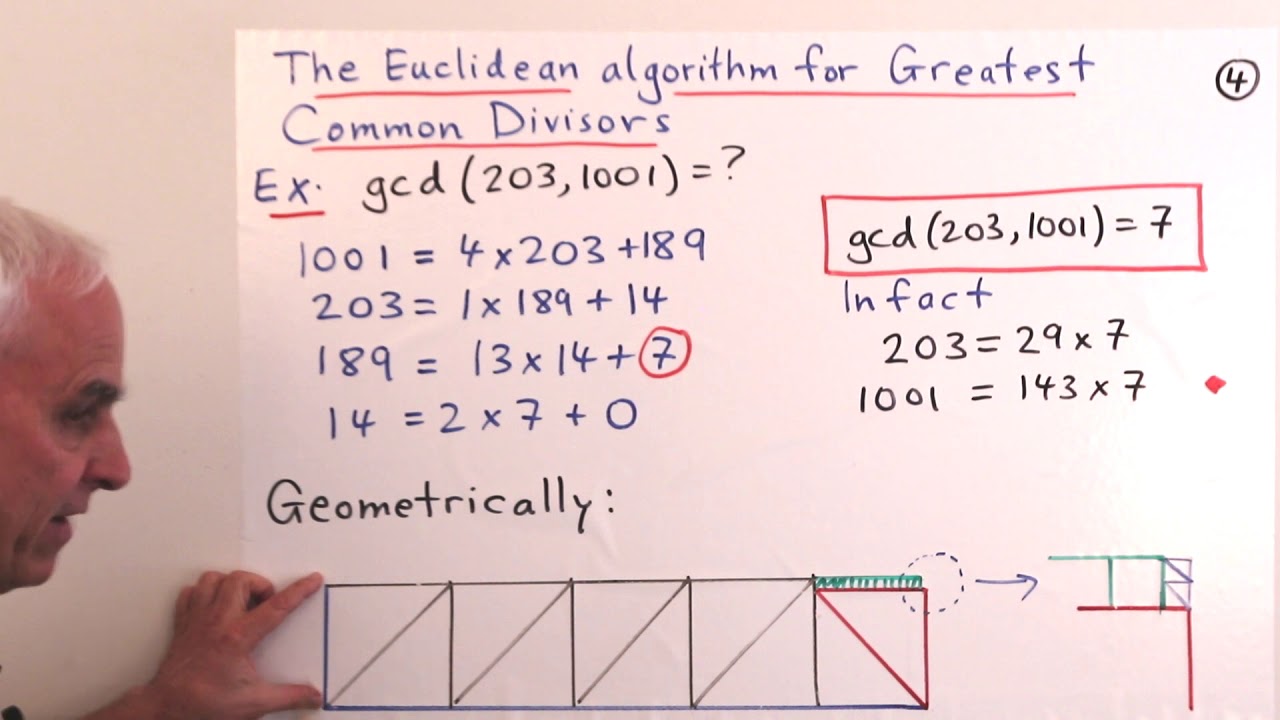 The Euclidean algorithm for Greatest
Common Divisors
④
Ex. gcd (203, 1001) = ?
1001 = 4 x 203 + 189
203 = 1 x 189 + 14
189 = 13 x 14 + 7
14 = 2 x 7 + 0
gcd (203, 1001) = 7
In fact
203 = 29 x 7
1001 = 143 x 7
Geometrically: